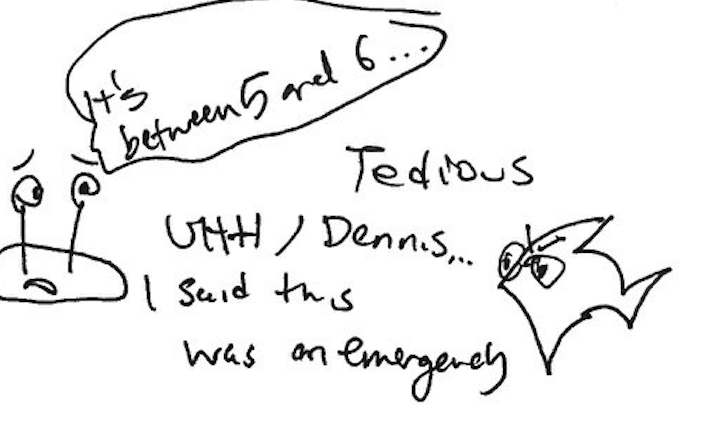 It's
between 5 and 6...
Tedious
UHH / Dennis...
I said this
was an emergency